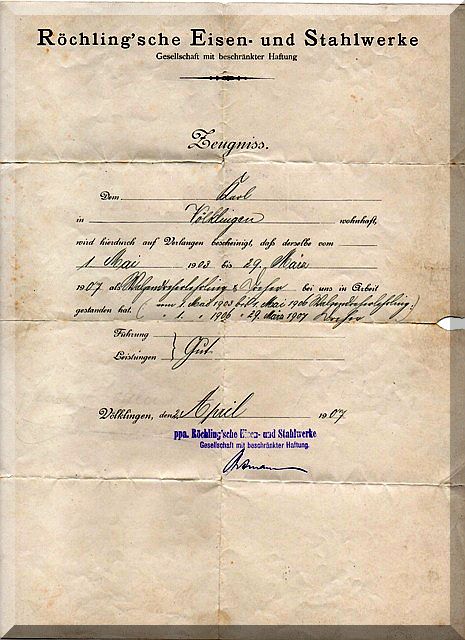 Röchling'sche Eisen- und Stahlwerke
Gesellschaft mit beschränkter Haftung
Zeugniss.
Dem Karl
in Völklingen wohnhaft,
wird hierdurch auf Verlangen bescheinigt, daß derselbe vom
1. Mai 1903 bis 29. März
1907 als Walzendreherlehrling & Dreher bei uns in Arbeit
gestanden hat. (vom 1. Mai 1903 bis 1. Mai 1906 Walzendreherlehrling)
" 1. " 1906 " 29. März 1907 Dreher
Führung
Leistungen } Gut
Völklingen, den 2. April 1907
ppa. Röchling'sche Eisen- und Stahlwerke
Gesellschaft mit beschränkter Haftung.